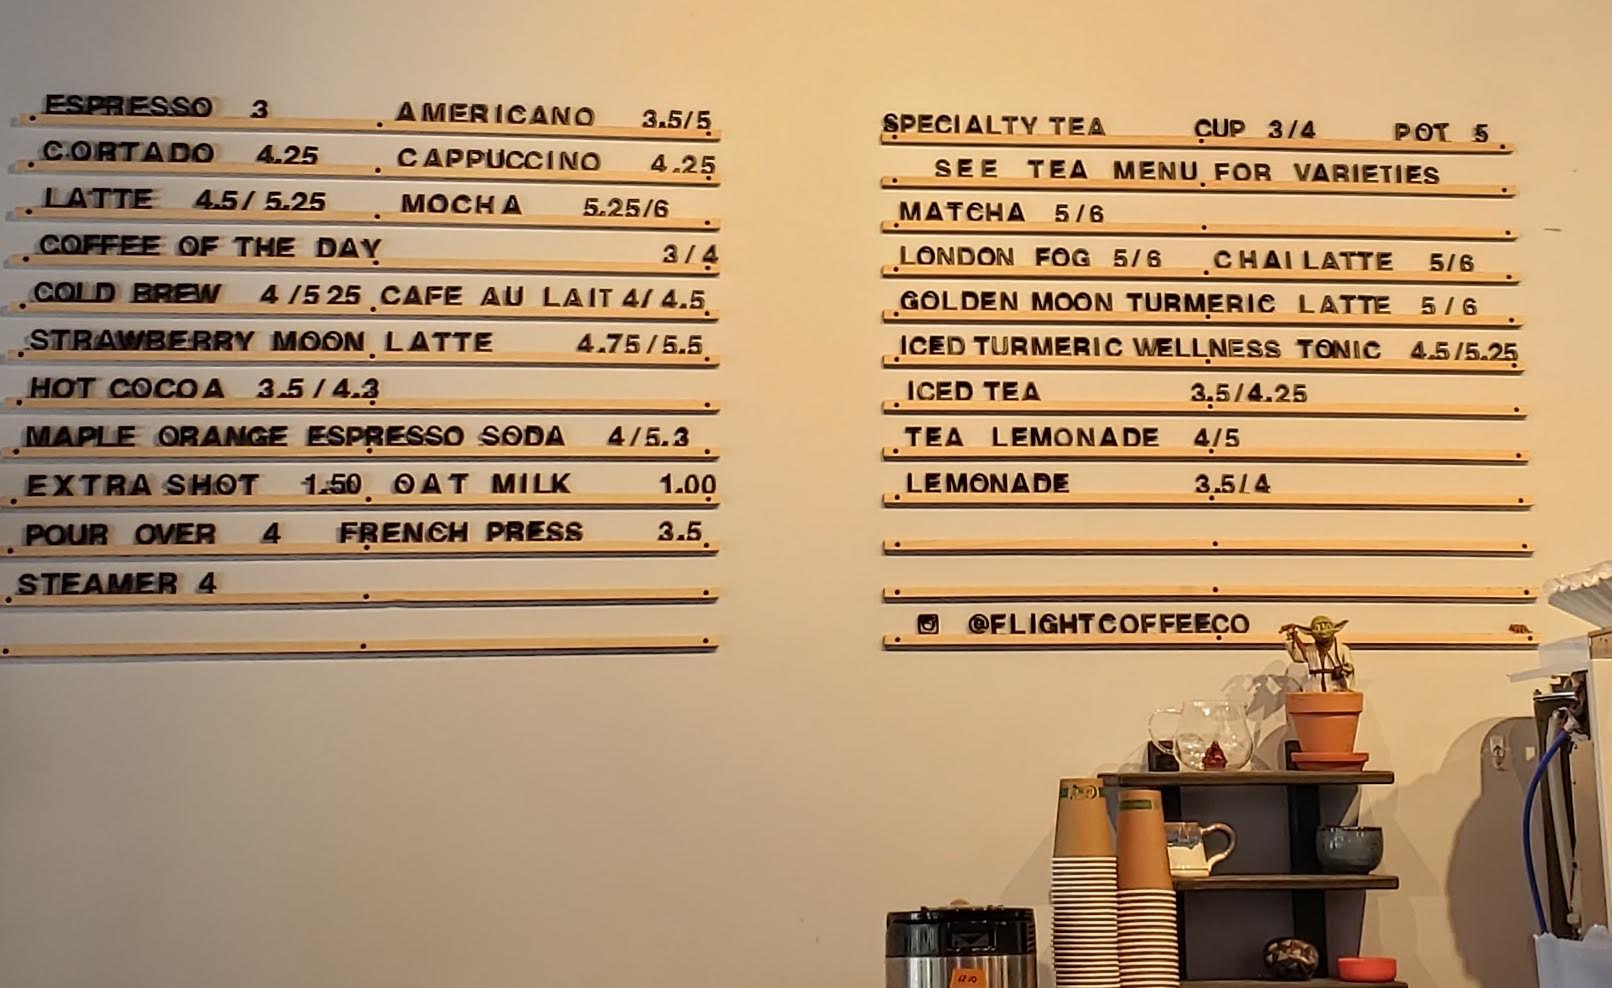 ESPRESSO 3 AMERICANO 3.5/5
CORTADO 4.25 CAPPUCCINO 4.25
LATTE 4.5/ 5.25 MOCHA 5.25/6
COFFEE OF THE DAY 3/4
COLD BREW 4/5 25 CAFE AU LAIT 4/ 4.5
STRAWBERRY MOON LATTE 4.75/5.5
HOT COCOA 3.5 / 4.3
MAPLE ORANGE ESPRESSO SODA 4/5.3
EXTRA SHOT 1.50 OAT MILK 1.00
POUR OVER 4 FRENCH PRESS 3.5
STEAMER 4
SPECIALTY TEA CUP 3/4 POT 5
SEE TEA MENU FOR VARIETIES
MATCHA 5/6
LONDON FOG 5/6 CHAI LATTE 5/6
GOLDEN MOON TURMERIC LATTE 5/6
ICED TURMERIC WELLNESS TONIC 4.5/5.25
ICED TEA 3.5/4.25
TEA LEMONADE 4/5
LEMONADE 3.5/4
@FLIGHTCOFFEECO